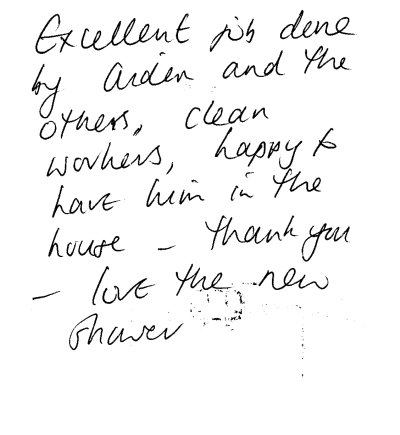 Excellent job done
by Arden and the
others, clean
workers, happy to
have him in the
house - thank you
- love the new
shower